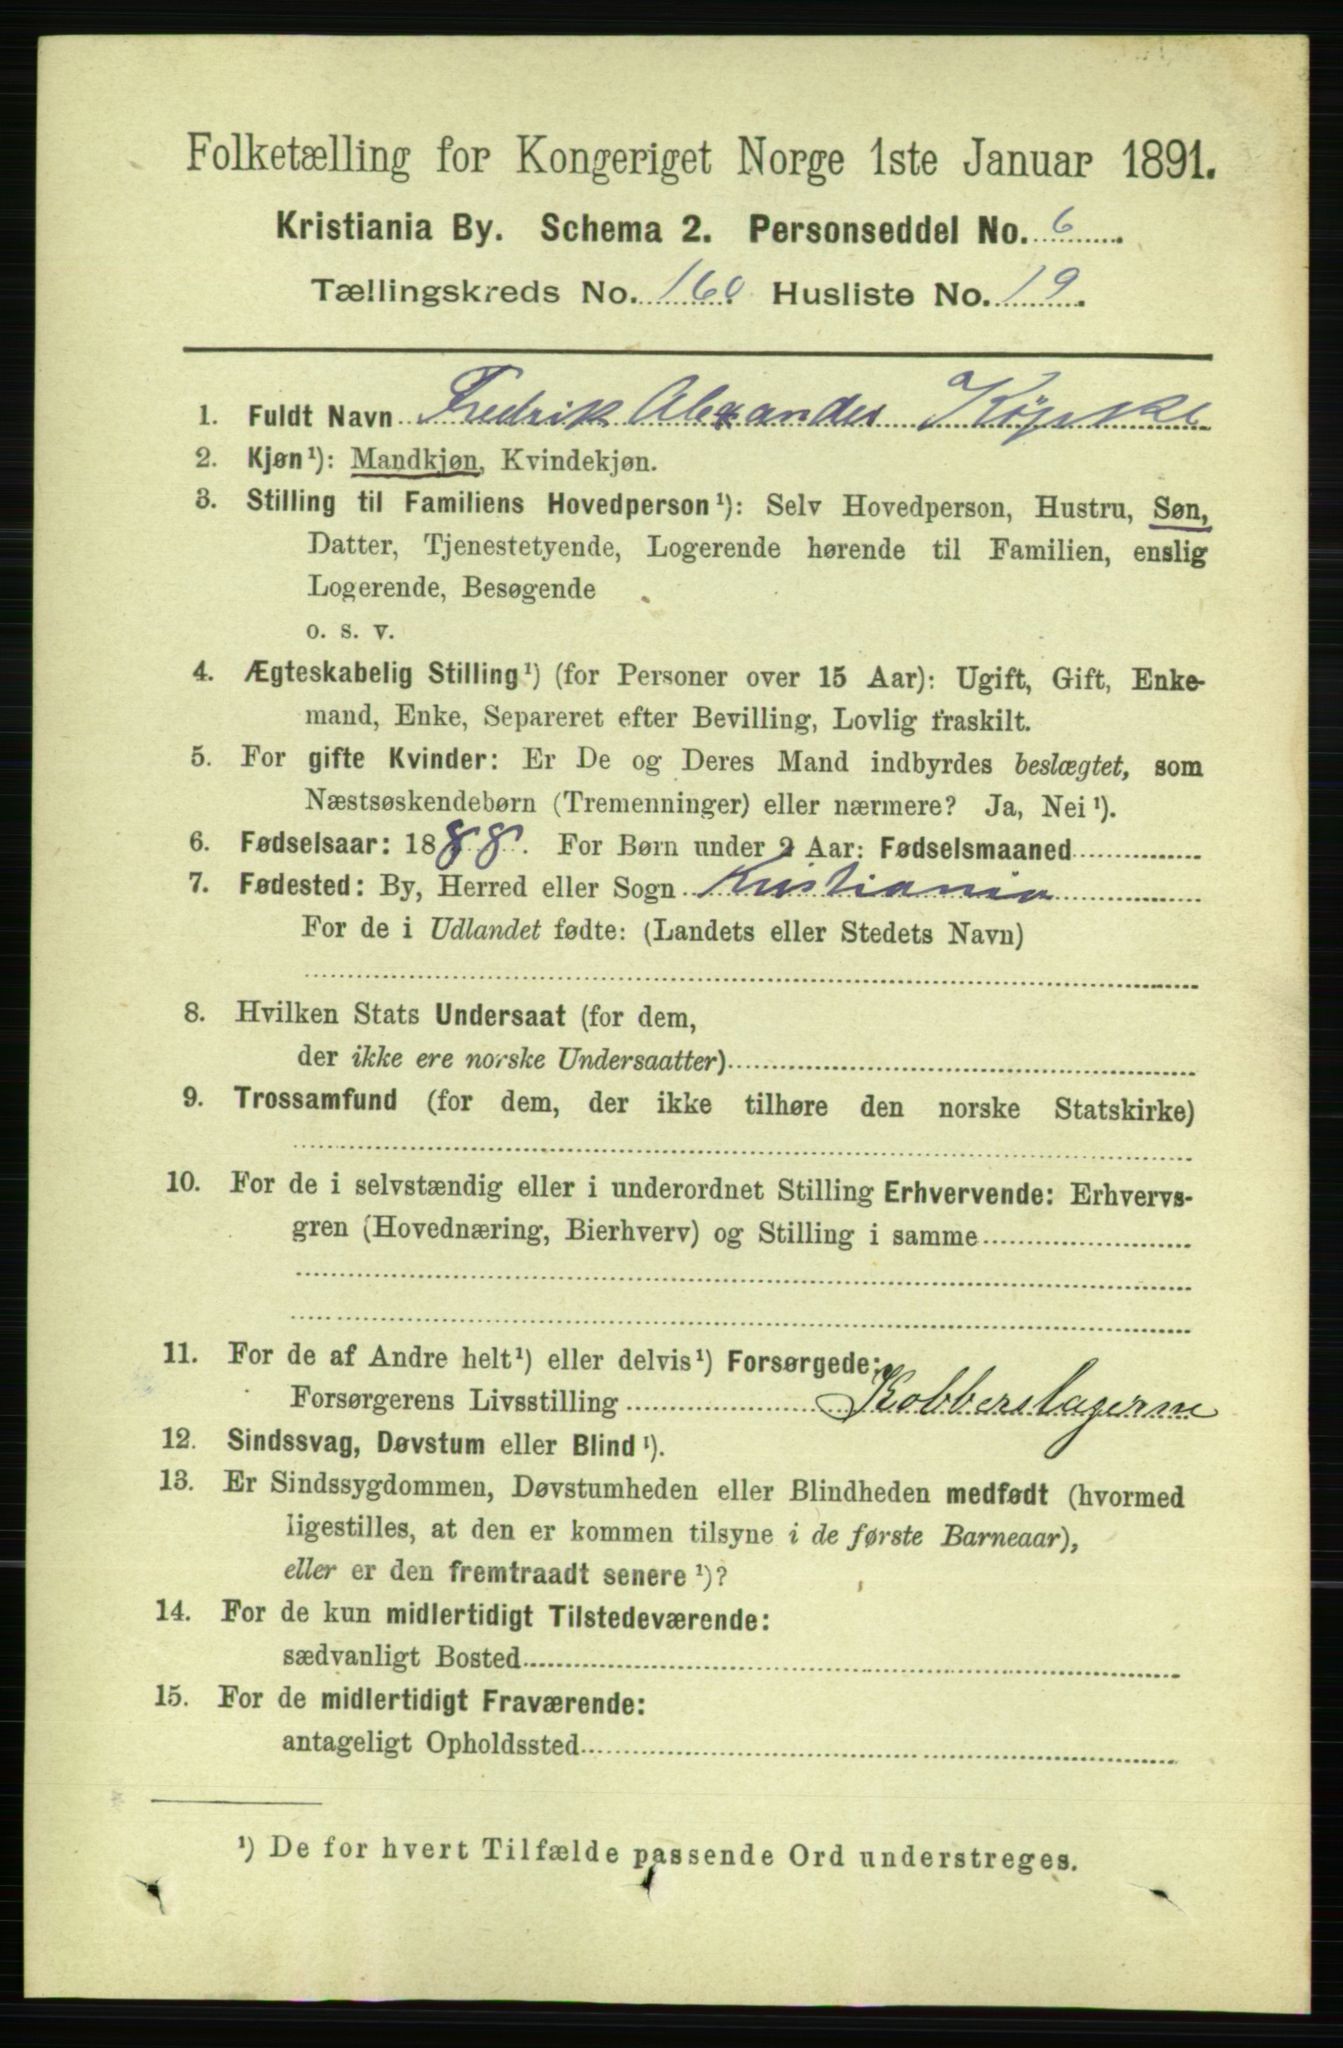 Folketælling for Kongeriget Norge 1ste Januar 1891.
Kristiania By. Schema 2. Personseddel No. 6
Tællingskreds No. 160 Husliste No. 19.
1. Fuldt Navn Fredrik Alexander Köpke
2. Kjøn¹): Mandkjøn, Kvindekjøn.
3. Stilling til Familiens Hovedperson¹): Selv Hovedperson, Hustru, Søn,
Datter, Tjenestetyende, Logerende hørende til Familien, enslig
Logerende, Besøgende
o. s. v.
4. Ægteskabelig Stilling¹) (for Personer over 15 Aar): Ugift, Gift, Enke-
mand, Enke, Separeret efter Bevilling, Lovlig fraskilt.
5. For gifte Kvinder: Er De og Deres Mand indbyrdes beslægtet, som
Næstsøskendebørn (Tremenninger) eller nærmere? Ja, Nei¹).
6. Fødselsaar: 1888. For Børn under 2 Aar: Fødselsmaaned
7. Fødested: By, Herred eller Sogn Kristiania
For de i Udlandet fødte: (Landets eller Stedets Navn)
8. Hvilken Stats Undersaat (for dem,
der ikke ere norske Undersaatter)
9. Trossamfund (for dem, der ikke tilhøre den norske Statskirke)
10. For de i selvstændig eller i underordnet Stilling Erhvervende: Erhvervs-
gren (Hovednæring, Bierhverv) og Stilling i samme
11. For de af Andre helt¹) eller delvis¹) Forsørgede:
Forsørgerens Livsstilling Kobberslagerme
12. Sindssvag, Døvstum eller Blind¹).
13. Er Sindssygdommen, Døvstumheden eller Blindheden medfødt (hvormed
ligestilles, at den er kommen tilsyne i de første Barneaar),
eller er den fremtraadt senere¹)?
14. For de kun midlertidigt Tilstedeværende:
sædvanligt Bosted
15. For de midlertidigt Fraværende:
antageligt Opholdssted
¹) De for hvert Tilfælde passende Ord understreges.